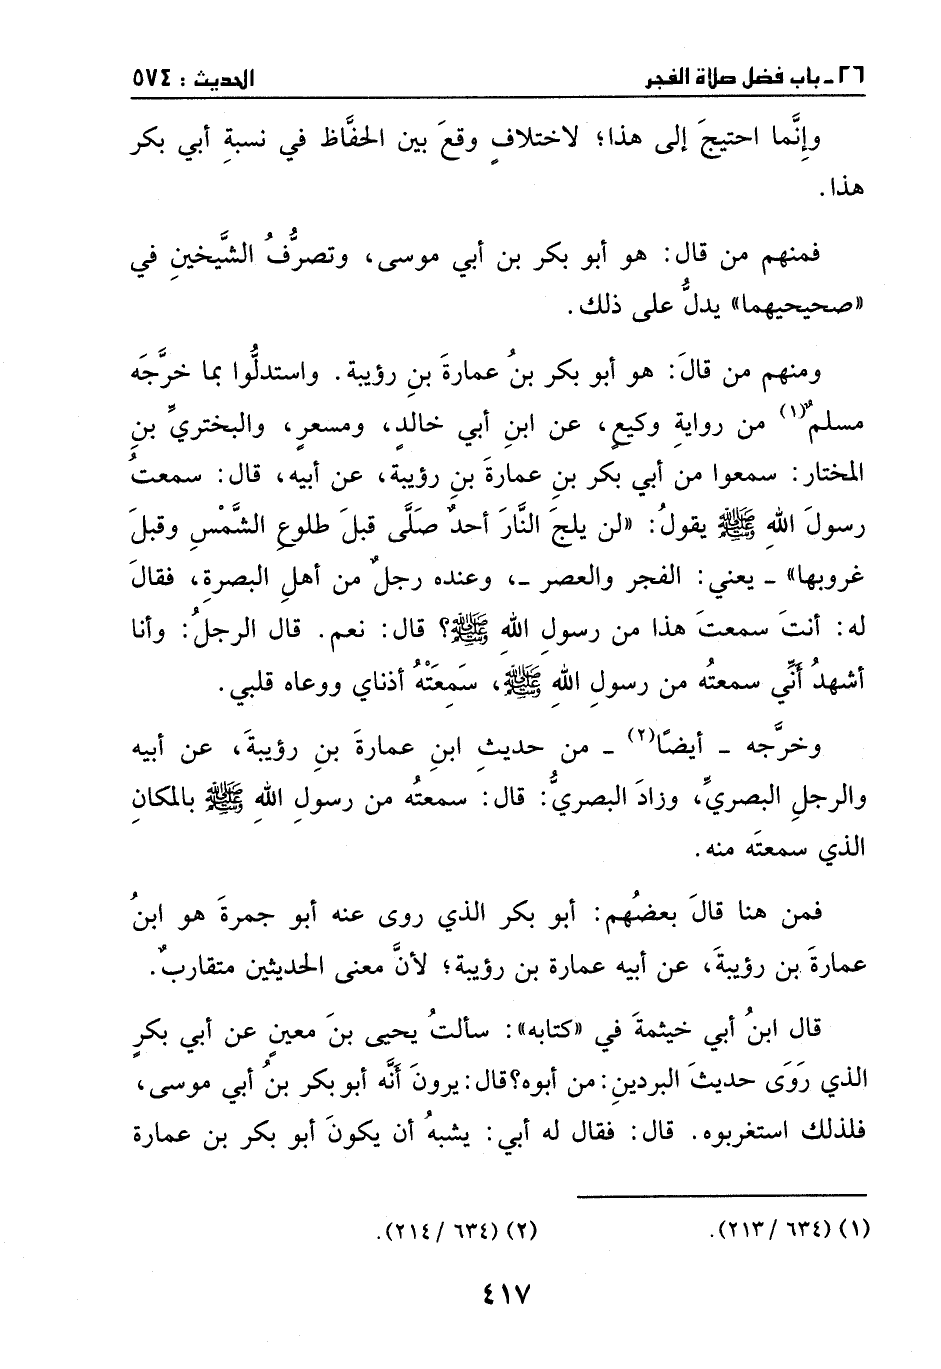 ٢٦ـ باب فضل صلاة الفجر
الحديث : ٥٧٤
وإِنَّما احتيجَ إلى هذا؛ لاختلافٍ وقعَ بين الحفَّاظ في نسبةِ أبي بكر
هذا.
فمنهم من قال: هو أبو بكر بن أبي موسى، وتصرُّفُ الشَّيخينِ في
«صحيحيهما» يدلُّ على ذلك.
ومنهم من قالَ: هو أبو بكر بنُ عمارةَ بنِ رؤيبة. واستدلُّوا بما خرَّجَه
مسلمٌ(١) من روايةِ وكيعٍ، عن ابنِ أبي خالدٍ، ومسعرٍ، والبختريِّ بنِ
المختار: سمعوا من أبي بكر بنِ عمارةَ بنِ رؤيبة، عن أبيه، قال: سمعتُ
رسولَ اللهِ ﷺ يقولُ: «لن يلجَ النَّارَ أحدٌ صَلَّى قبلَ طلوعِ الشَّمْسِ وقبلَ
غروبها» ـ يعني: الفجر والعصر ـ، وعنده رجلٌ من أهلِ البصرةِ، فقالَ
له: أنتَ سمعتَ هذا من رسولِ اللهِ ﷺ؟ قال: نعم. قال الرجلُ: وأنا
أشهدُ أَنِّي سمعتُه من رسولِ اللهِ ﷺ، سَمِعَتْهُ أذناي ووعاه قلبي.
وخرَّجه ـ أيضًا(٢) ـ من حديثِ ابنِ عمارةَ بنِ رؤيبةَ، عن أبيه
والرجلِ البصريِّ، وزادَ البصريُّ: قال: سمعتُه من رسولِ اللهِ ﷺ بالمكانِ
الذي سمعتَه منه.
فمن هنا قالَ بعضُهم: أبو بكر الذي روى عنه أبو جمرةَ هو ابنُ
عمارةَ بن رؤيبةَ، عن أبيه عمارة بن رؤيبة؛ لأنَّ معنى الحديثين متقاربٌ.
قال ابنُ أبي خيثمةَ في «كتابه»: سألتُ يحيى بنَ معينٍ عن أبي بكرٍ
الذي رَوَى حديثَ البردينِ: من أبوه؟ قال: يرونَ أنَّه أبو بكر بنُ أبي موسى،
فلذلك استغربوه. قال: فقال له أبي: يشبهُ أن يكونَ أبو بكر بن عمارة
(١) (٢١٣/٦٣٤).
(٢) (٢١٤/٦٣٤).
٤١٧